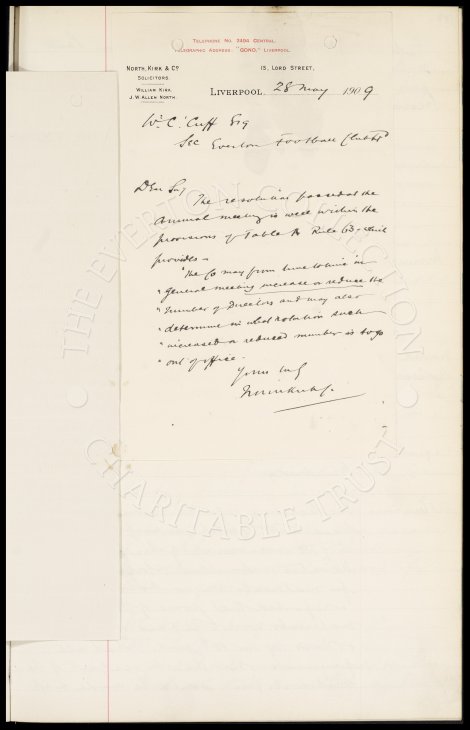 TELEPHONE No. 2494 CENTRAL.
TELEGRAPHIC ADDRESS, "GOKO," LIVERPOOL.
NORTH, KIRK & Co
SOLICITORS.
WILLIAM KIRK.
J. W. ALLEN NORTH.
15, LORD STREET,
LIVERPOOL, 28 May 1909
W. C. Cuff Esq
Sec Everton Football Club Ltd
Dear Sir
The resolution passed at the
Annual meeting is well within the
provisions of Table A Rule 63 which
provides –
"The Co may from time to time in
"general meeting increase or reduce the
"number of Directors and may also
"determine in what rotation such
"increased or reduced number is to go
"out of office.
Yours truly
North Kirk & Co
THE EVERTON COLLECTION
CHARITABLE TRUST